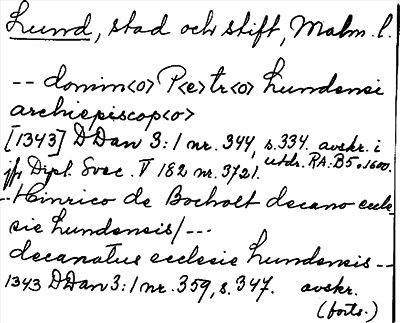 Lund, stad och stift, Malm. l.
-- domin<o> P<e>tr<o> Lundensi
archiepiscop<o>
[1343] DDan 3:1 nr. 344, s. 334. avskr. i
jfr Dipl. Svec. V 182 nr. 3721. utdr. RA: B5 o. 1600.
-- Hinrico de Bocholt decano eccle
sie Lundensis/ ---
decanatus ecclesie Lundensis --
1343 DDan 3:1 nr. 359, s. 347. avskr.
(forts.)